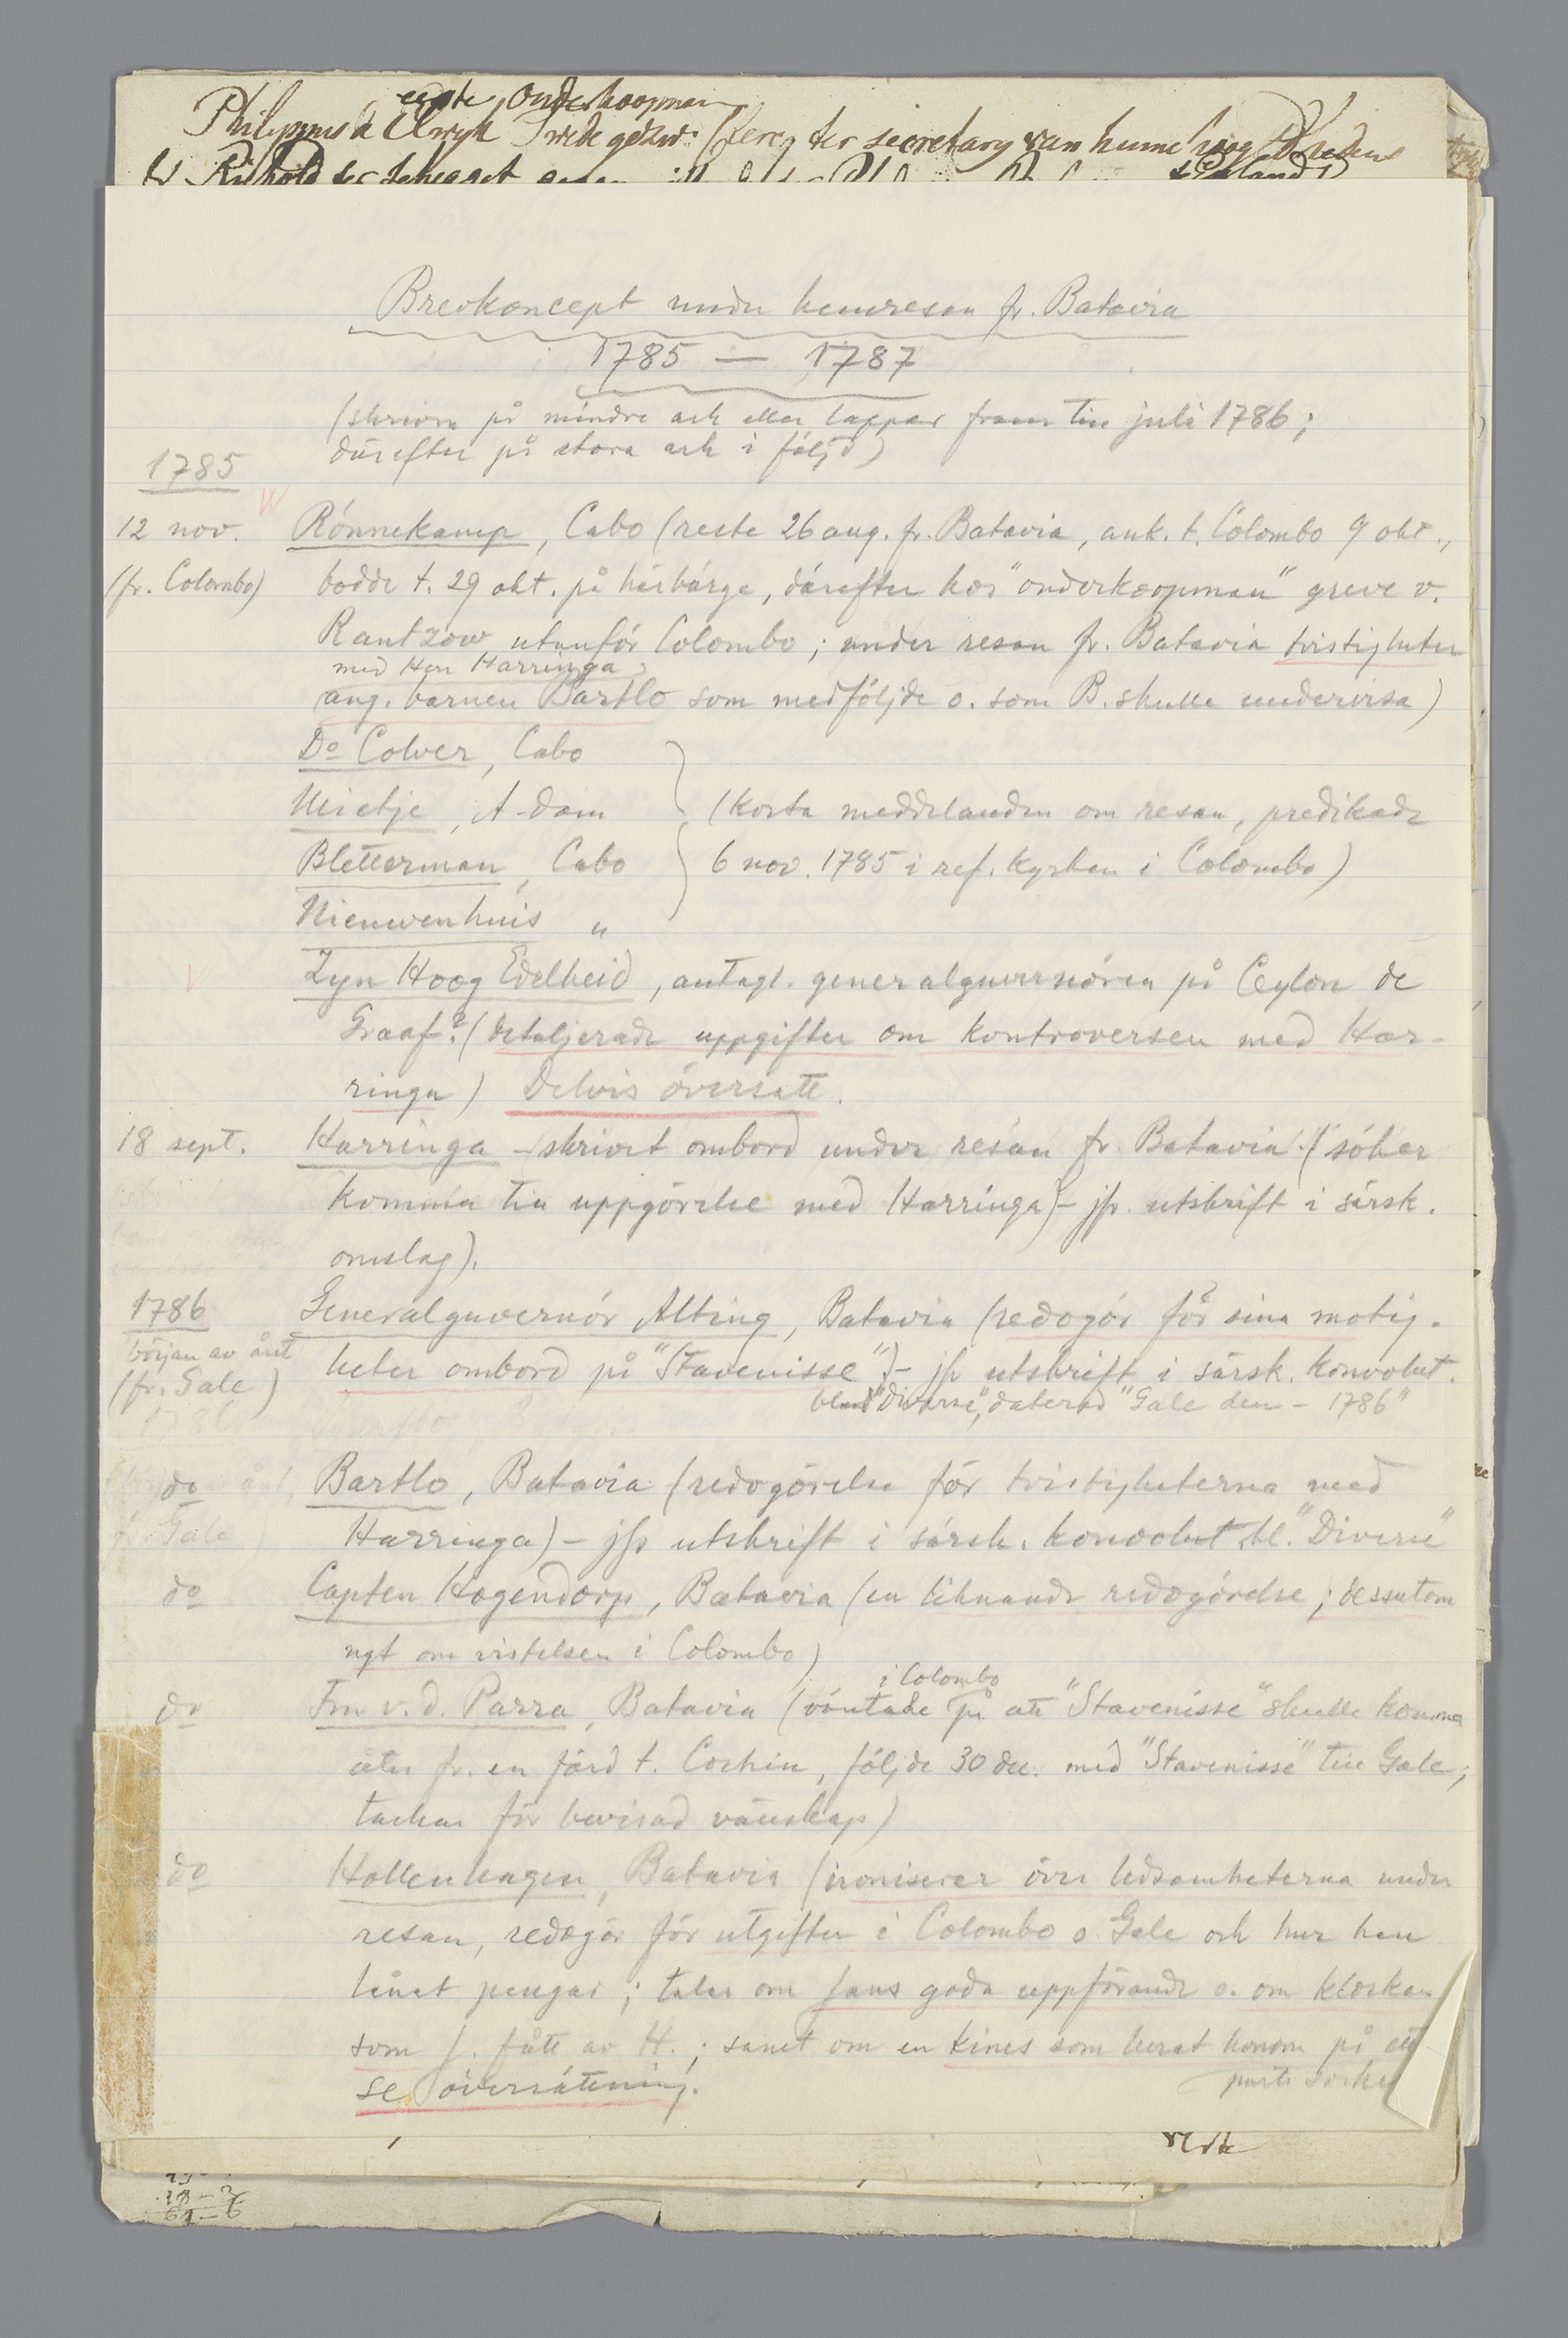 eerste onderkoopman
Philippus d Elwyk ter secretary van hunne hoog
Brevkoncept under hemresan fr. Batavia
1785 — 1787
(skrivna på mindre ark eller lappar fram till juli 1786;
därefter på stora ark i följd)
1785
12 nov. Rönnekamp, Cabo (reste 26 aug. fr. Batavia, ank. t. Colombo 9 okt.,
(fr. Colombo) bodde t. 29 okt. på härbärge, därefter hos "onderkoopman" greve v.
Rantzow utanför Colombo; under resan fr. Batavia tvistigheter
med Herr Harringa
ang. barnen Bartlo som medföljde o. som B. skulle undervisa)
Do Colver, Cabo
Mietje, A-dam (korta meddelanden om resan, predikade
Bletterman, Cabo 6 nov. 1785 i ref. kyrkan i Colombo)
Nieuwenhuis "
Zyn Hoog Edelheid, antagl. generalguvernören på Ceylon de
Graaf? (detaljerade uppgifter om kontroversen med Har-
ringa) Delvis översatt.
18 sept. Harringa – skrivet ombord under resan fr. Batavia (söker
komma till uppgörelse med Harringa) – jfr. utskrift i särsk.
omslag).
1786 Generalguvernör Alting, Batavia (redogör för sina motig-
början av året
heter ombord på "Stavenisse") – jfr utskrift i särsk. konvolut.
(fr. Gale)
bland "Diverse", daterad "Gale den – 1786"
do Bartlo, Batavia (redogörelse för tvistigheterna med
Harringa) – jfr utskrift i särsk. konvolut bl. "Diverse"
do Capten Hogendorp, Batavia (en liknande redogörelse; dessutom
ngt om vistelsen i Colombo)
i Colombo
do Fru v. d. Parra, Batavia (väntade på att "Stavenisse" skulle komma
åter fr. en färd t. Cochin, följde 30 dec. med "Stavenisse" till Gale;
tackar för bevisad vänskap)
do Hollenhagen, Batavia (ironiserar över ledsamheterna under
resan, redogör för utgifter i Colombo o. Gale och hur han
lånat pengar; talar om Jans goda uppförande o. om klockan
som J. fått av H.; samt om en kines som lurat honom på ett
parti
se översättning.